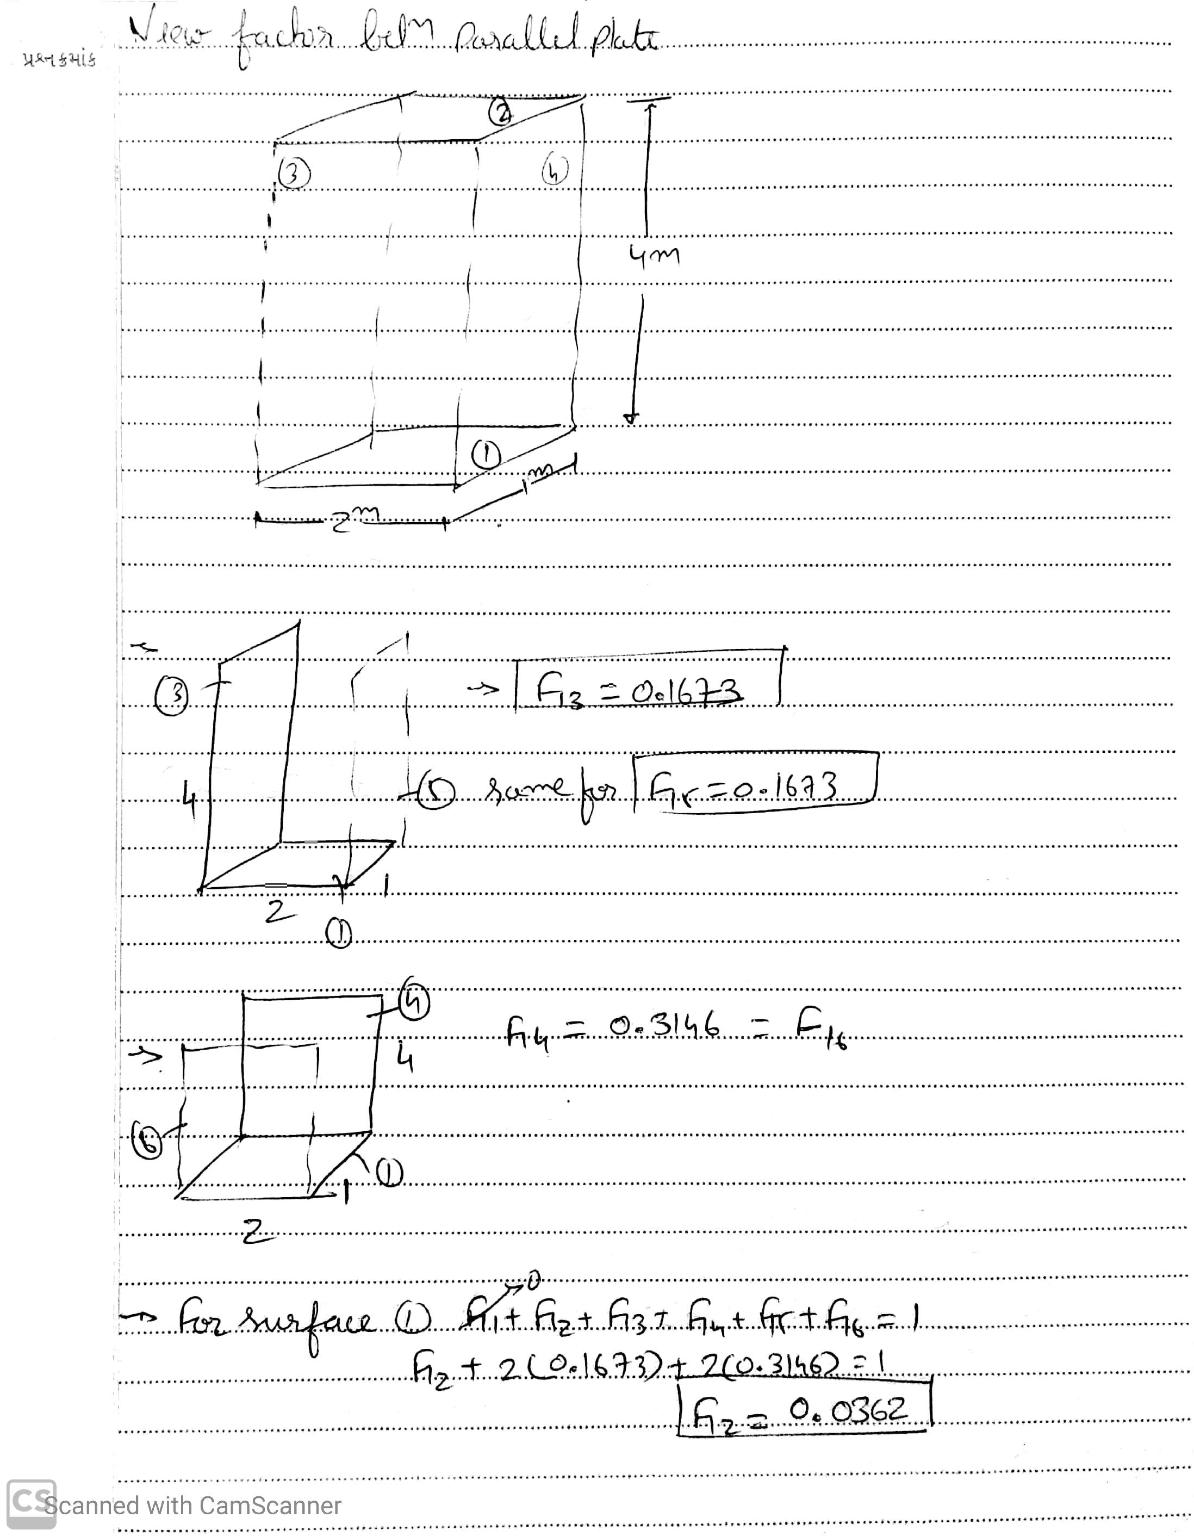 View factor betn parallel plate
પ્રશ્ન ક્રમાંક
②
③
④
4m
①
1m
2m
③
→ F13 = 0.1673
4
⑤ same for F15 = 0.1673
2
1
①
④
F14 = 0.3146 = F16
→
4
⑥
①
1
2
→ For surface ① F11 + F12 + F13 + F14 + F15 + F16 = 1
0
F12 + 2(0.1673) + 2(0.3146) = 1
F12 = 0.0362
CS Scanned with CamScanner